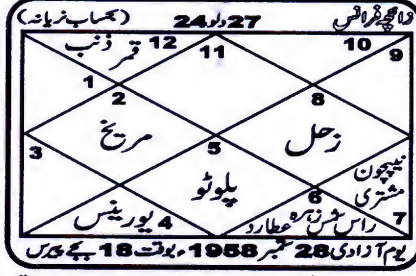 زائچہ فرانس 27 دلو 24 (بحساب نریانہ)
10 9
11
12 قمر ذنب
1
2
8
مریخ
زحل
3
5
نیپچون
مشتری
پلوٹو
6
7
4 یورینس
راس شمس زہرہ عطارد
یوم آزادی 28 ستمبر 1958ء بوقت 18 بجے پیرس